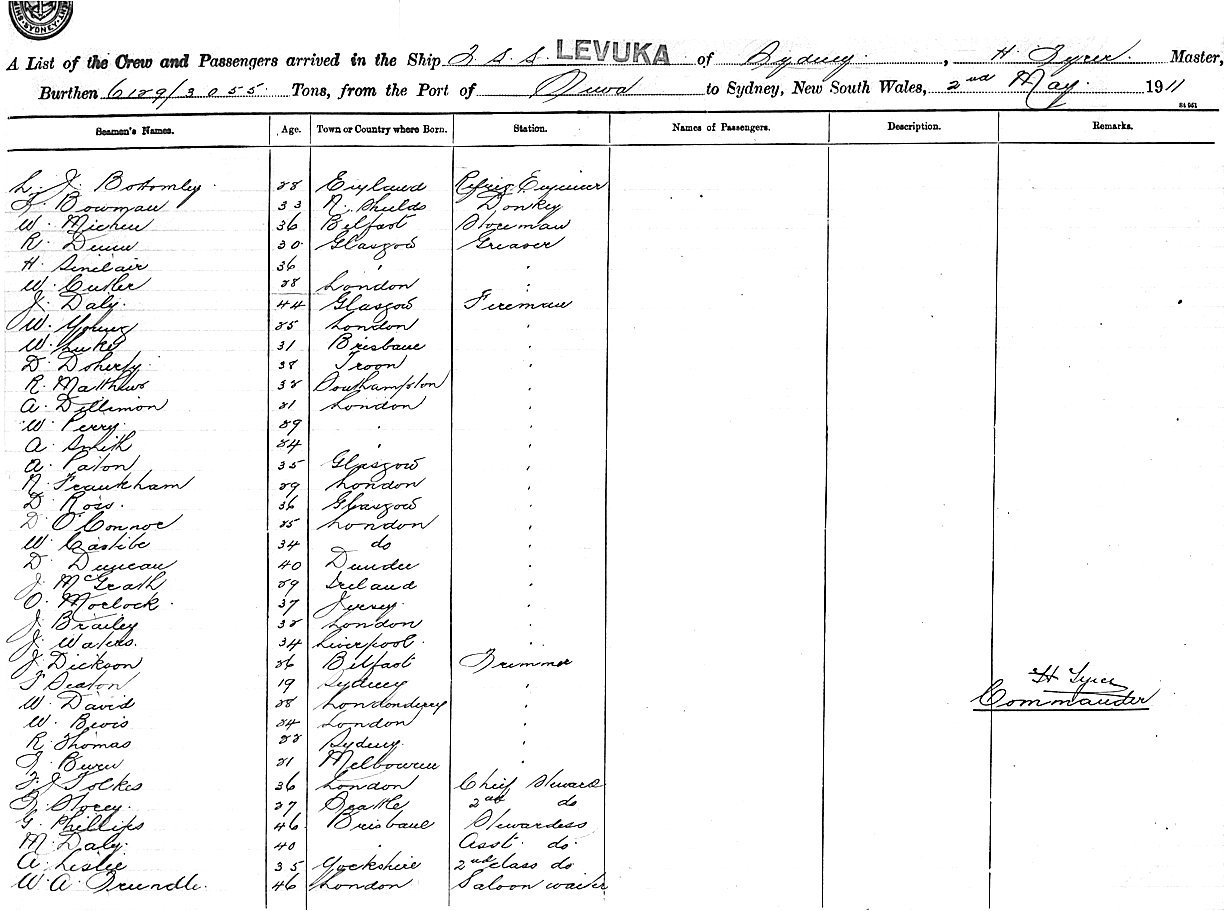 SYDNEY
A List of the Crew and Passengers arrived in the Ship T. S. S. LEVUKA of Sydney, H. Tyrer Master,
Burthen 6129/3055 Tons, from the Port of Suva to Sydney, New South Wales, 2nd May 1911
Seamen's Names. Age. Town or Country where Born. Station. Names of Passengers. Description. Remarks.
L. J. Bottomley 28 England Refrig Engineer
Bowman 33 N. Shields Donkey
W. 36 Belfast Storeman
R. Dunn 30 Glasgow Greaser
H. Sinclair 36 "
W. Cutler 28 London "
J. Daly 44 Glasgow Fireman
W. Young 25 London "
W. Luke 31 Brisbane "
D. Doherty 38 Troon "
R. Matthews 32 Southampton "
A. Dillimon 21 London "
W. Perry 29 " "
A. Smith 24 " "
A. Paton 35 Glasgow "
N. Frankham 29 London "
D. Ross 36 Glasgow "
D. O'Connor 25 London "
W. 34 do "
D. Duncan 40 Dundee "
J. McGrath 29 Ireland "
O. Morlock 37 Jersey "
J. Brailey 32 London "
J. Waters 34 Liverpool "
J. Dickson 26 Belfast Trimmer
H Tyrer
F Seaton 19 Sydney "
W. David 28 Londonderry "
Commander
W. Bevis 24 London "
R. Thomas 22 Sydney "
21 Melbourne "
F. J. Folkes 36 London Chief Steward
Storey 27 Seattle 2nd do
G. Phillips 46 Brisbane Stewardess
M. Daly 40 " Asst. do
A. Leslie 35 Yorkshire 2nd class do
W. A. Trundle 46 London Saloon waiter